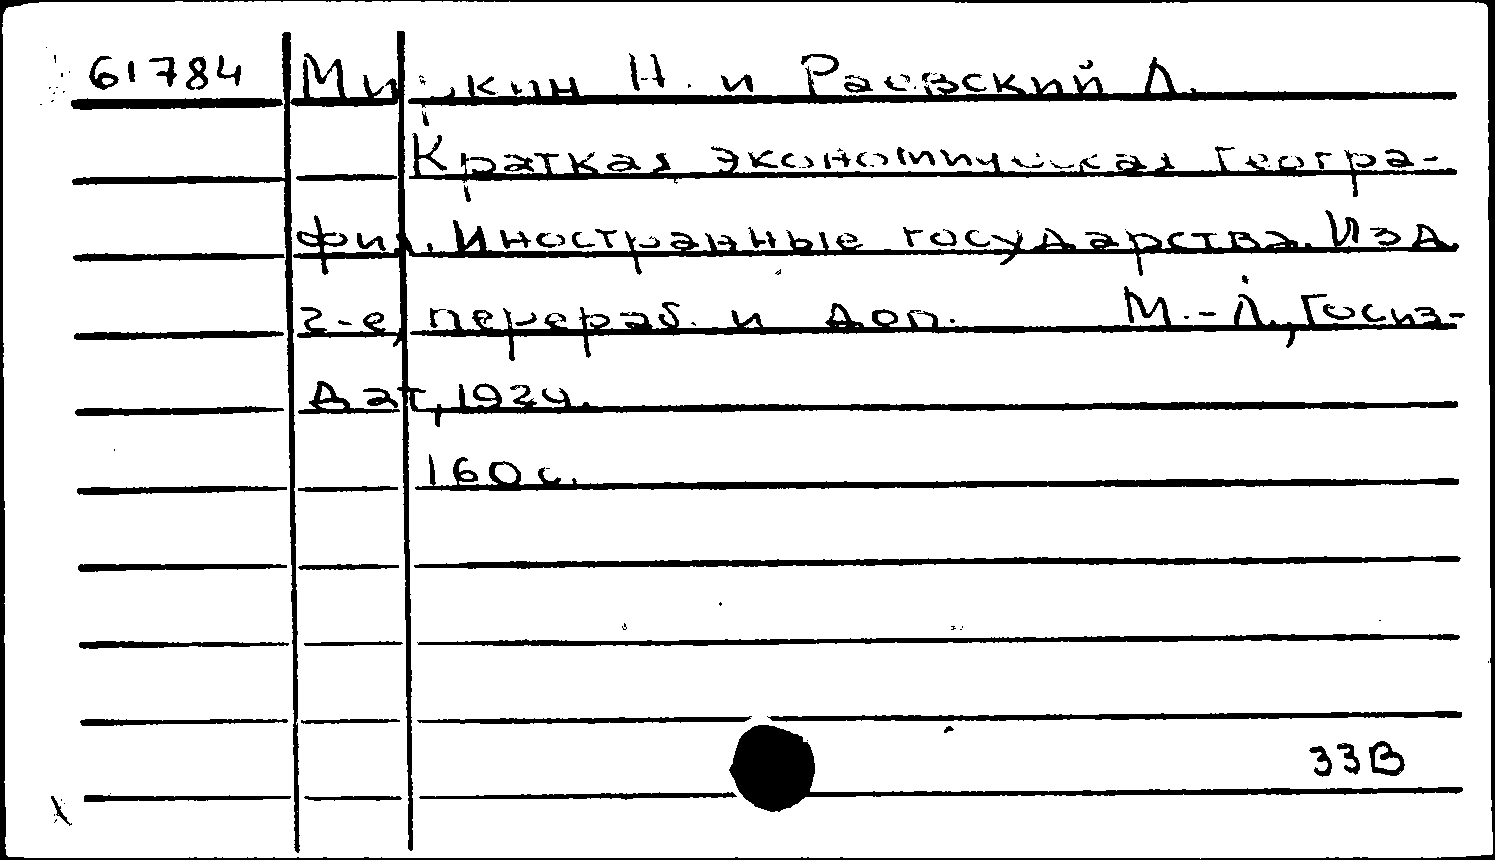 61784 Мишкин Н. и Раевский Л.
Краткая экономическая геогра-
фия. Иностранные государства. Изд.
2-е, перераб. и доп. М.-Л., Госиз-
дат, 1924.
160 с.
33В